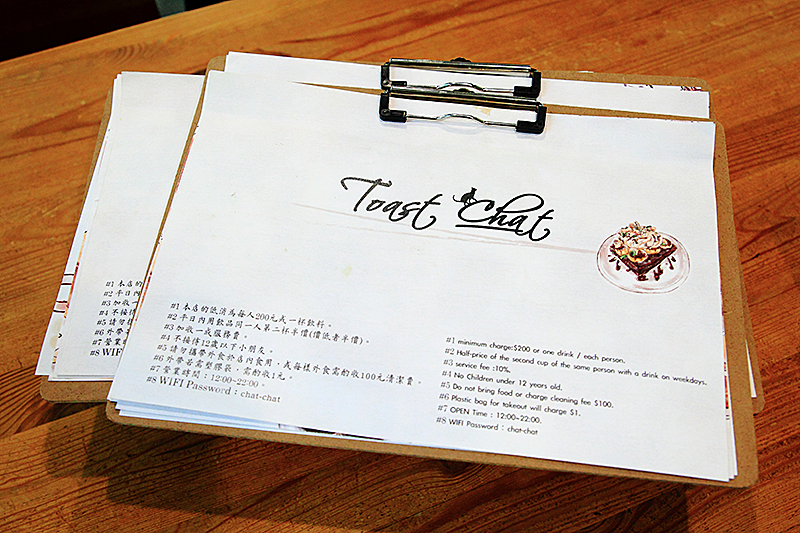 Toast Chat
#1 本店的低消為每人200元或一杯飲料。
#2 平日內用飲品同一人第二杯半價(價低者半價)。
#3 加收一成服務費。
#4 不接待12歲以下小朋友。
#5 請勿攜帶外食於店內食用，或每樣外食需酌收100元清潔費。
#6 外帶若需塑膠袋，需酌收1元。
#7 營業時間：12:00~22:00。
#8 WIFI Password：chat-chat
#1 minimum charge:$200 or one drink / each person.
#2 Half-price of the second cup of the same person with a drink on weekdays.
#3 service fee :10%.
#4 No Children under 12 years old.
#5 Do not bring food or charge cleaning fee $100.
#6 Plastic bag for takeout will charge $1.
#7 OPEN Time : 12:00~22:00.
#8 WIFI Password : chat-chat
#1 本店的
#2 平日內
#3 加收
#4 不接待
#5 請勿
#6 外帶
#7 營業
#8 WIFI